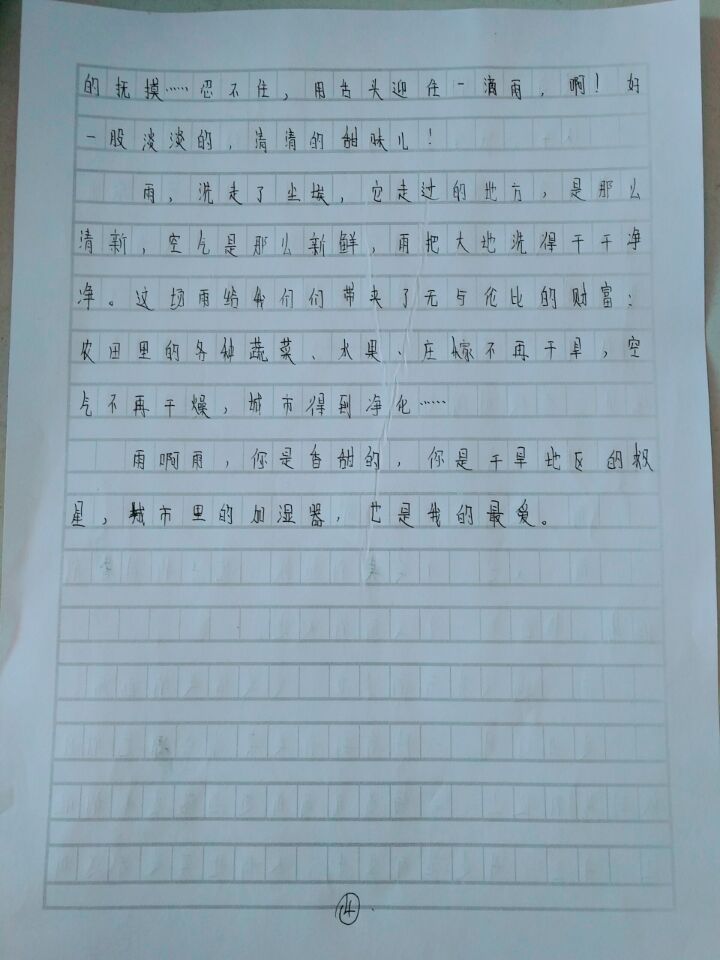 的抚摸……忍不住，用舌头迎住一滴雨，啊！好
一股淡淡的，清清的甜味儿！
雨，洗走了尘埃，它走过的地方，是那么
清新，空气是那么新鲜，雨把大地洗得干干净
净。这场雨给我们们带来了无与伦比的财富：
农田里的各种蔬菜、水果、庄稼不再干旱，空
气不再干燥，城市得到净化……
雨啊雨，你是香甜的，你是干旱地区的救
星，城市里的加湿器，也是我的最爱。
14